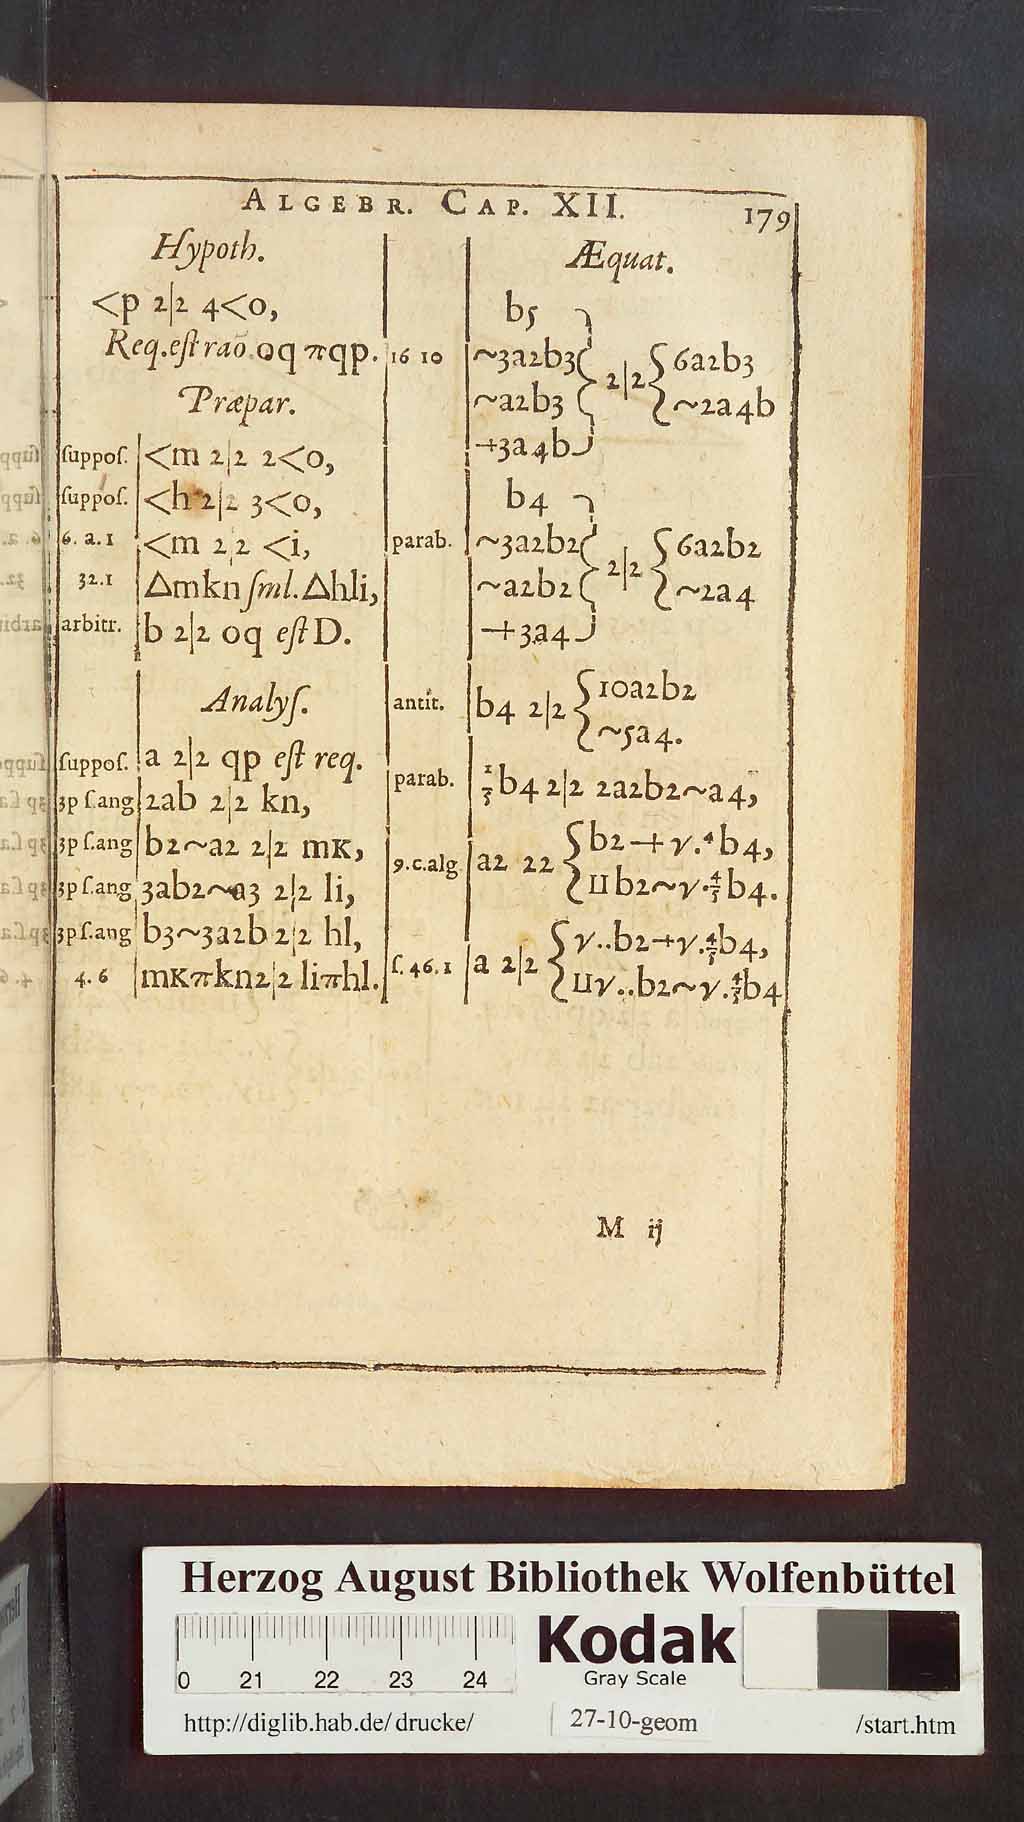 ALGEBR. CAP. XII. 179
Hypoth.
<p 2|2 4<o,
Req. eſt rao̅ oq π qp.
Præpar.
ſuppoſ. <m 2|2 2<o,
ſuppoſ. <h 2|2 3<o,
6. a. 1 <m 2|2 <i,
32.1 △mkn ſml. △hli,
arbitr. b 2|2 oq eſt D.
Analyſ.
ſuppoſ. a 2|2 qp eſt req.
3p ſ.ang 2ab 2|2 kn,
3p ſ.ang b2~a2 2|2 mκ,
3p ſ.ang 3ab2~a3 2|2 li,
3p ſ.ang b3~3a2b 2|2 hl,
4.6 mκπkn2|2 liπhl.
Æquat.
b5
16 10 ~3a2b3 2|2 { 6a2b3
~a2b3 ~2a4b
+3a4b
b4
parab. ~3a2b2 2|2 { 6a2b2
~a2b2 ~2a4
+3a4
antit. b4 2|2 { 10a2b2
~5a4.
parab. 1/5 b4 2|2 2a2b2~a4,
9.c.alg. a2 22 { b2+√.4 b4,
⊔b2~√.4/5 b4.
ſ.46.1 a 2|2 { √..b2+√.4/5 b4,
⊔√..b2~√.4/5 b4
M ij
Herzog August Bibliothek Wolfenbüttel
0 21 22 23 24
Kodak
Gray Scale
http://diglib.hab.de/drucke/ 27-10-geom /start.htm